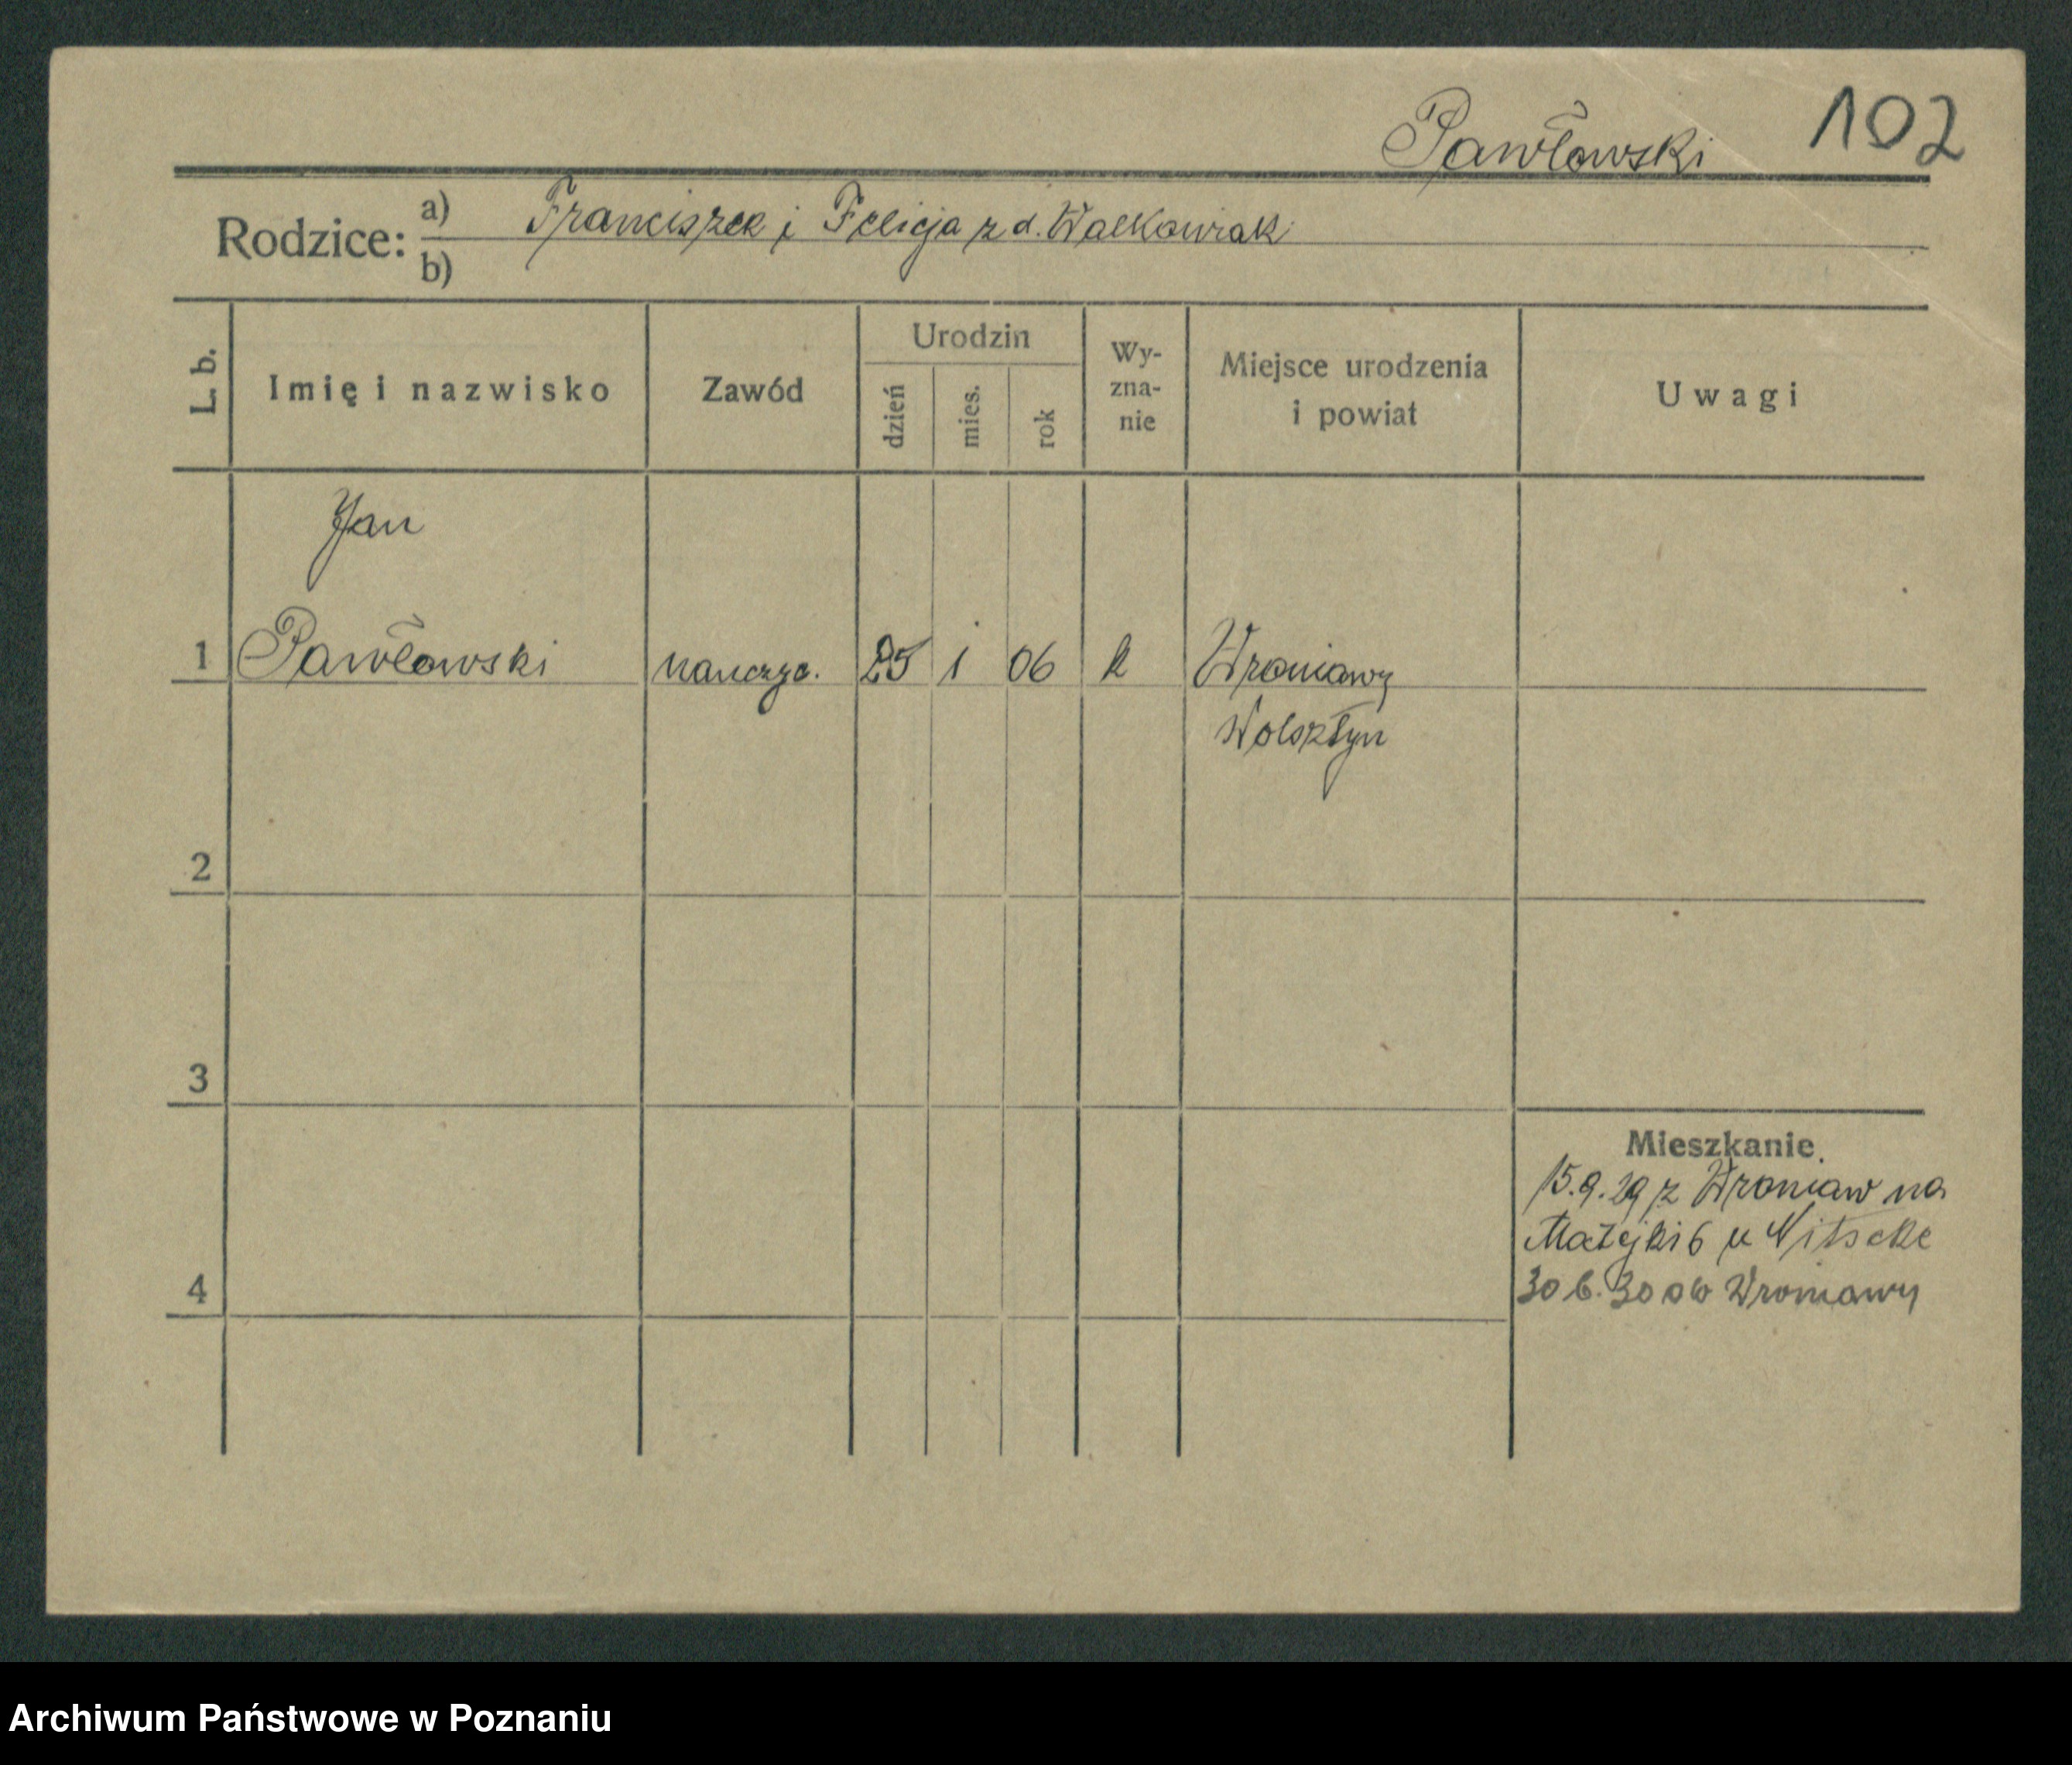 Pawłowski 102
Rodzice: a) Franciszek i Felicja z d. Walkowiak
b)
L. b. Imię i nazwisko Zawód Urodzin dzień mies. rok Wy-zna-nie Miejsce urodzenia i powiat Uwagi
Jan
1 Pawłowski nauczyc. 25 1 06 k Wroniawy
Wolsztyn
2
3
Mieszkanie.
15.9.29 z Wroniaw na
Matejki 6 u Nitschke
4 30 6. 30 Wroniawy
Archiwum Państwowe w Poznaniu